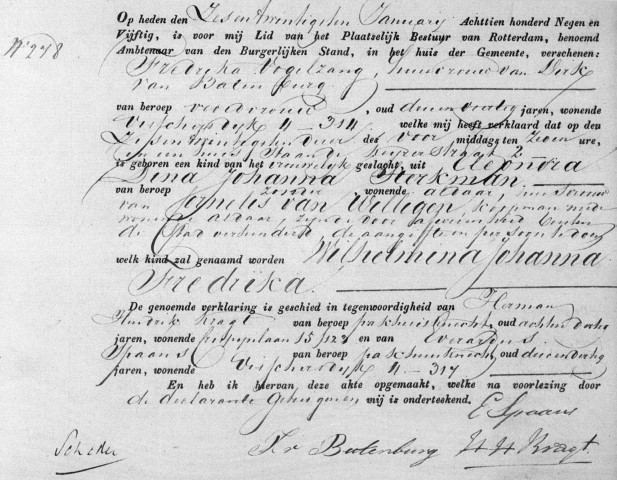 Op heden den Zesentwintigsten January Achttien honderd Negen en
No 278 Vijftig, is voor mij Lid van het Plaatselijk Bestuur van Rotterdam, benoemd
Ambtenaar van den Burgerlijken Stand, in het huis der Gemeente, verschenen:
Fredrika Vogelzang, huisvrouw van Dirk
van Buten burg
van beroep vroedvrouw, oud jaren, wonende
4 - 314 welke mij heeft verklaard dat op den
Zesentwintigsten dezer des voor middags ten Zeven ure,
in een huis Staande 2
is geboren een kind van het vrouwelijk geslacht, uit Eleonora
Dina Johanna Sterkman
van beroep zonder wonende aldaar, huisvrouw
van Cornelis van Willigen, koopman mede
wonende aldaar, zijnde door afwezendheid buiten
de Stad verhinderd, de aangifte in persoon te doen
welk kind zal genaamd worden Wilhelmina Johanna
Fredrika.
De genoemde verklaring is geschied in tegenwoordigheid van Herman
Hendrik Kragt van beroep pakhuisknecht, oud achtendertig
jaren, wonende 15/128 en van Everardus
Spaans van beroep pakhuisknecht, oud
jaren, wonende 4 - 317
En heb ik hiervan deze akte opgemaakt, welke na voorlezing door
de declarante Getuigen en mij is onderteekend. E Spaans
Fr Butenburg H H Kragt.